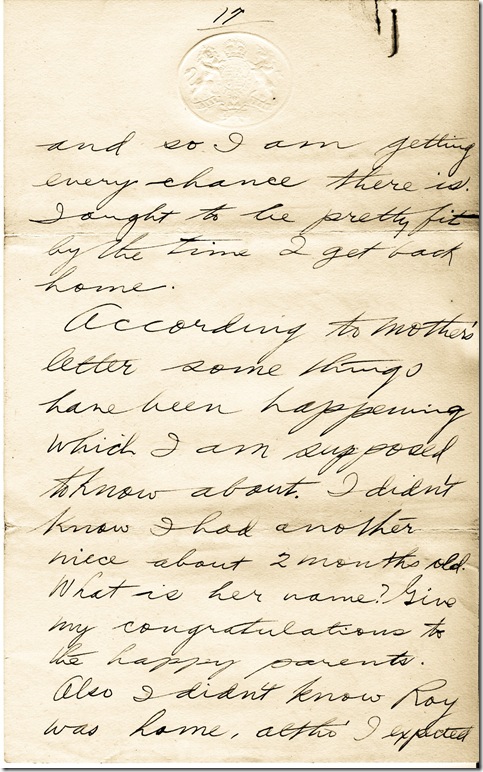 17
and so I am getting
every chance there is.
I ought to be pretty fit
by the time I get back
home.
According to Mother's
letter some things
have been happening
which I am supposed
to know about. I didn't
know I had another
niece about 2 months old.
What is her name? Give
my congratulations to
the happy parents.
Also I didn't know Roy
was home, altho' I expected